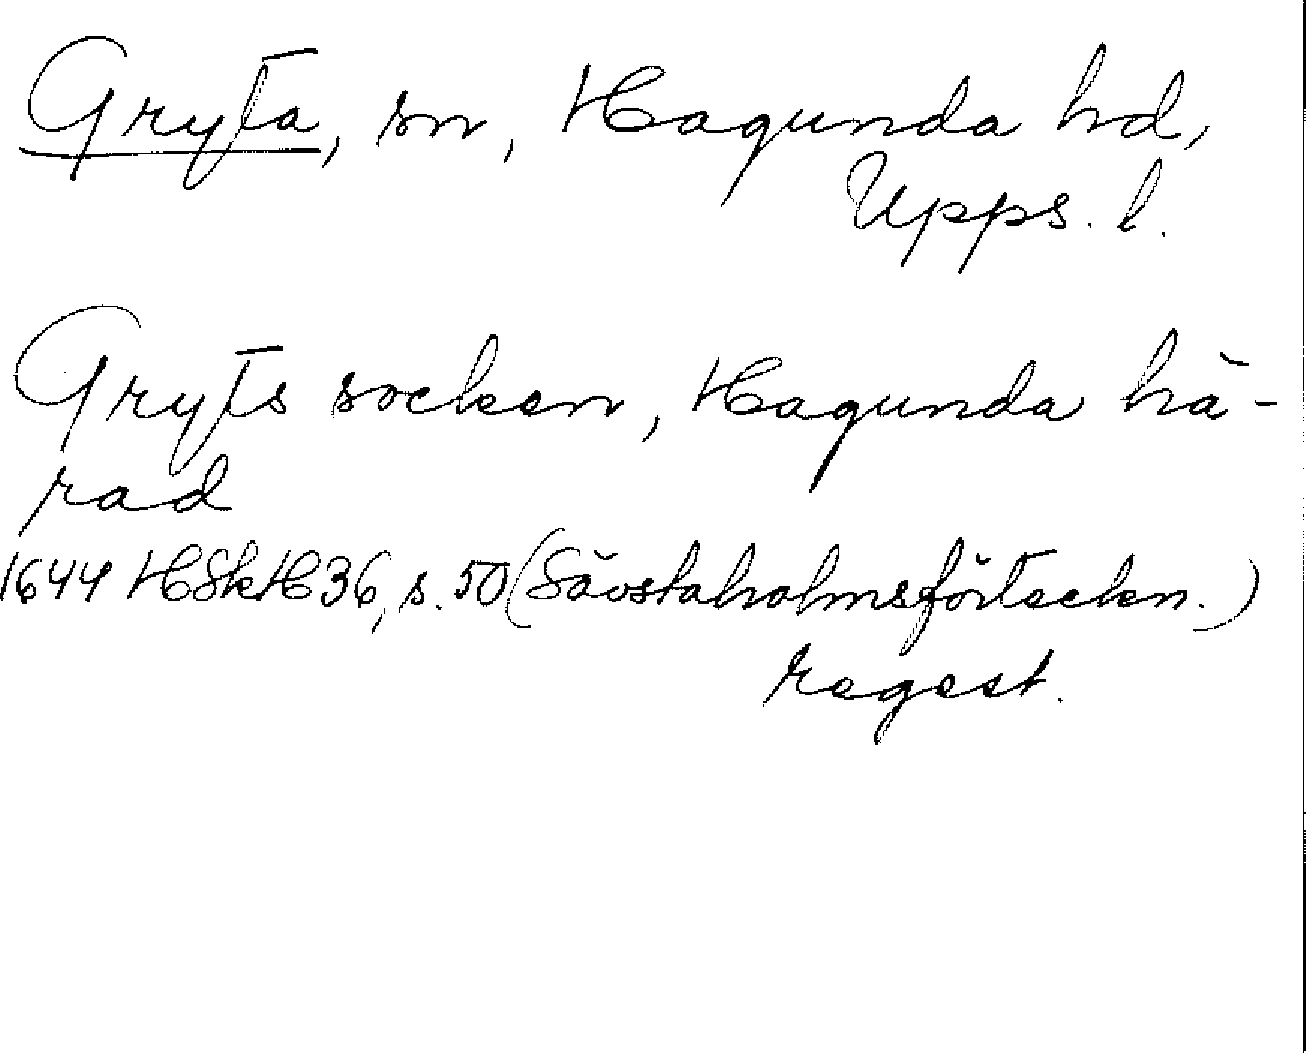 Gryta, sn, Hagunda hd,
Upps. l.
Gryts socken, Hagunda hä-
rad
1644 HSkH 36, s. 50 (Sävstaholmsförteckn.)
regest.